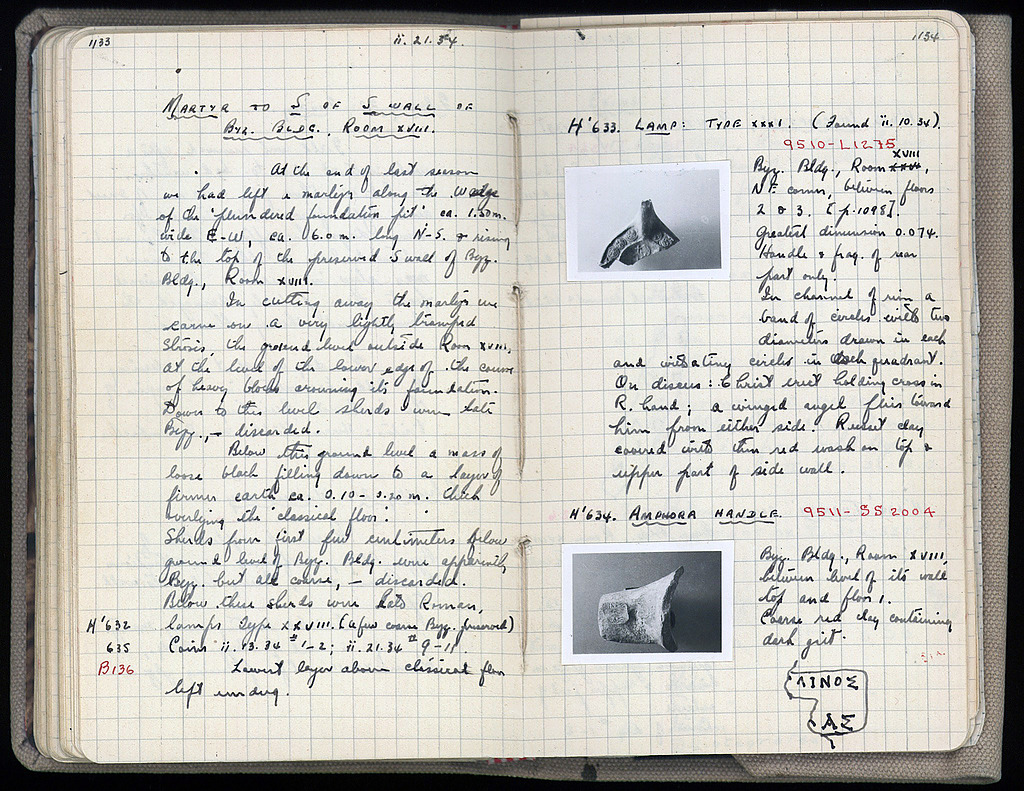 1133
ii. 21. 34.
MARTYR TO S OF S WALL OF
BYZ. BLDG., ROOM XVIII.
At the end of last season
we had left a martyr along the W edge
of the 'plundered foundation pit' ca. 1.50 m.
wide E-W, ca. 6.0 m. long N-S. & rising
to the top of the preserved S wall of Byz.
Bldg., Room XVIII.
In cutting away the martyr we
came on a very lightly tramped
strosis, the ground level outside Room XVIII,
at the level of the lower edge of the course
of heavy blocks crowning its foundation.
Down to this level sherds were late
Byz., – discarded.
Below this ground level a mass of
loose black filling down to a layer of
firmer earth ca. 0.10 – 0.20 m. thick
overlying the 'classical floor'.
Sherds from first few centimeters below
ground level of Byz. Bldg. were apparently
Byz. but all coarse, – discarded.
Below these sherds were late Roman,
H'632 lamps Type XXVIII. (a few coarse Byz. preserved)
635 Coins ii. 13. 34 # 1-2; ii. 21. 34 # 9-11.
B136 Lowest layer above classical floor
left undug.
1134
H'633. LAMP: TYPE XXXI. (Found ii. 10. 34).
9510-L1275
XVIII
Byz. Bldg., Room XXVI,
N E corner, between floors
2 & 3. [p. 1098].
Greatest dimension 0.074.
Handle & frag. of rear
part only.
In channel of rim a
band of circles with two
diameters drawn in each
and circles in each quadrant.
On discus: Christ erect holding cross in
R. hand; a winged angel flies toward
him from either side. Russet clay
covered with thin red wash on top &
upper part of side wall.
H'634. AMPHORA HANDLE. 9511-SS 2004
Byz. Bldg., Room XVIII,
between level of its wall
top and floor 1.
Coarse red clay containing
dark grit.
ΛΙΝΟΣ
ΑΣ